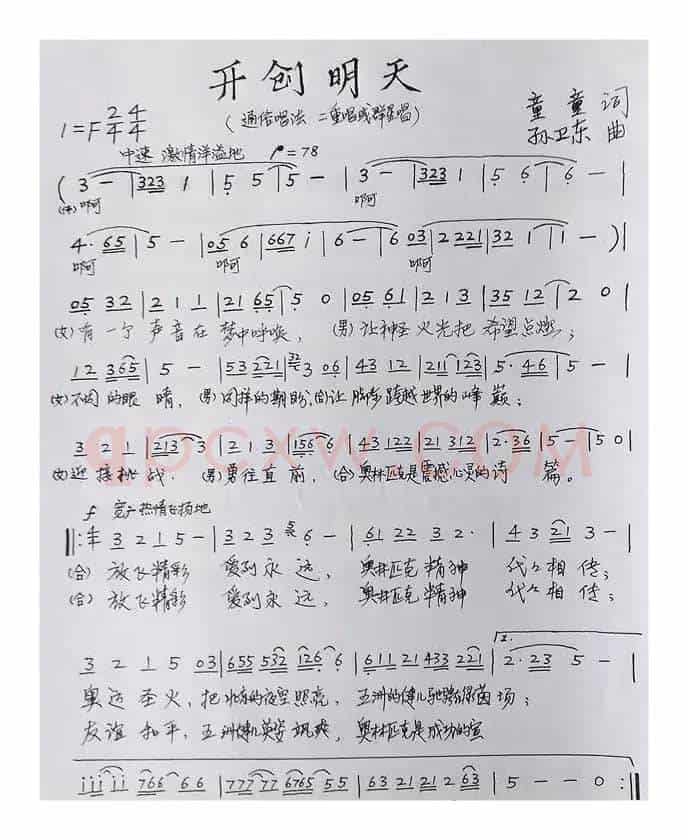 开创明天
(通俗唱法 二重唱或群星唱)
童童 词
孙卫东 曲
1=F 2/4 4/4
中速 激情洋溢地 =78
(3 - | 323 1 | 5 5 | 5 - | 3 - | 323 1 | 5 6 | 6 - |
啊 啊
4· 65 | 5 - | 05 6 | 667 i | 6 - | 6 03 | 2 221 | 32 1 | 1 - ) |
啊 啊 啊
05 32 | 2 1 1 | 21 65 | 5 0 | 05 61 | 2 1 3 | 35 12 | 2 0 |
(女)有一个声音在梦中呼唤, (男)让神圣火光把希望点燃;
12 365 | 5 - | 53 221 | 3 06 | 43 12 | 211 123 | 5· 46 | 5 - |
(女)不同的眼睛, (男)同样的期盼,(合)让脚步跨越世界的峰巅;
3 2 1 | 213 3 | 2 1 3 | 156 6 | 43 122 | 21 312 | 2·36 | 5 - | 5 0 |
(女)迎接挑战. (男)勇往直前, (合)奥林匹克是震撼心灵的诗篇。
qpcxw.com
f 宽广热情飞扬地
‖: 4/4 3 2 1 5 - | 3 2 3 5 6 - | 61 22 3 2· | 4 3 21 3 - |
(合) 放飞精彩 爱到永远, 奥林匹克精神 代々相传;
(合) 放飞精彩 爱到永远, 奥林匹克精神 代々相传;
3 2 1 5 03 | 655 532 126 6 | 611 21 433 221 | 2· 23 5 - |
奥运圣火,把北京的夜空照亮, 五洲的健儿驰骋绿茵场;
友谊和平,五洲健儿英姿飒爽, 奥林匹克是成功的宣
iii ii 766 66 | 777 77 6765 55 | 63 21 21 2 63 | 5 - - 0 :‖